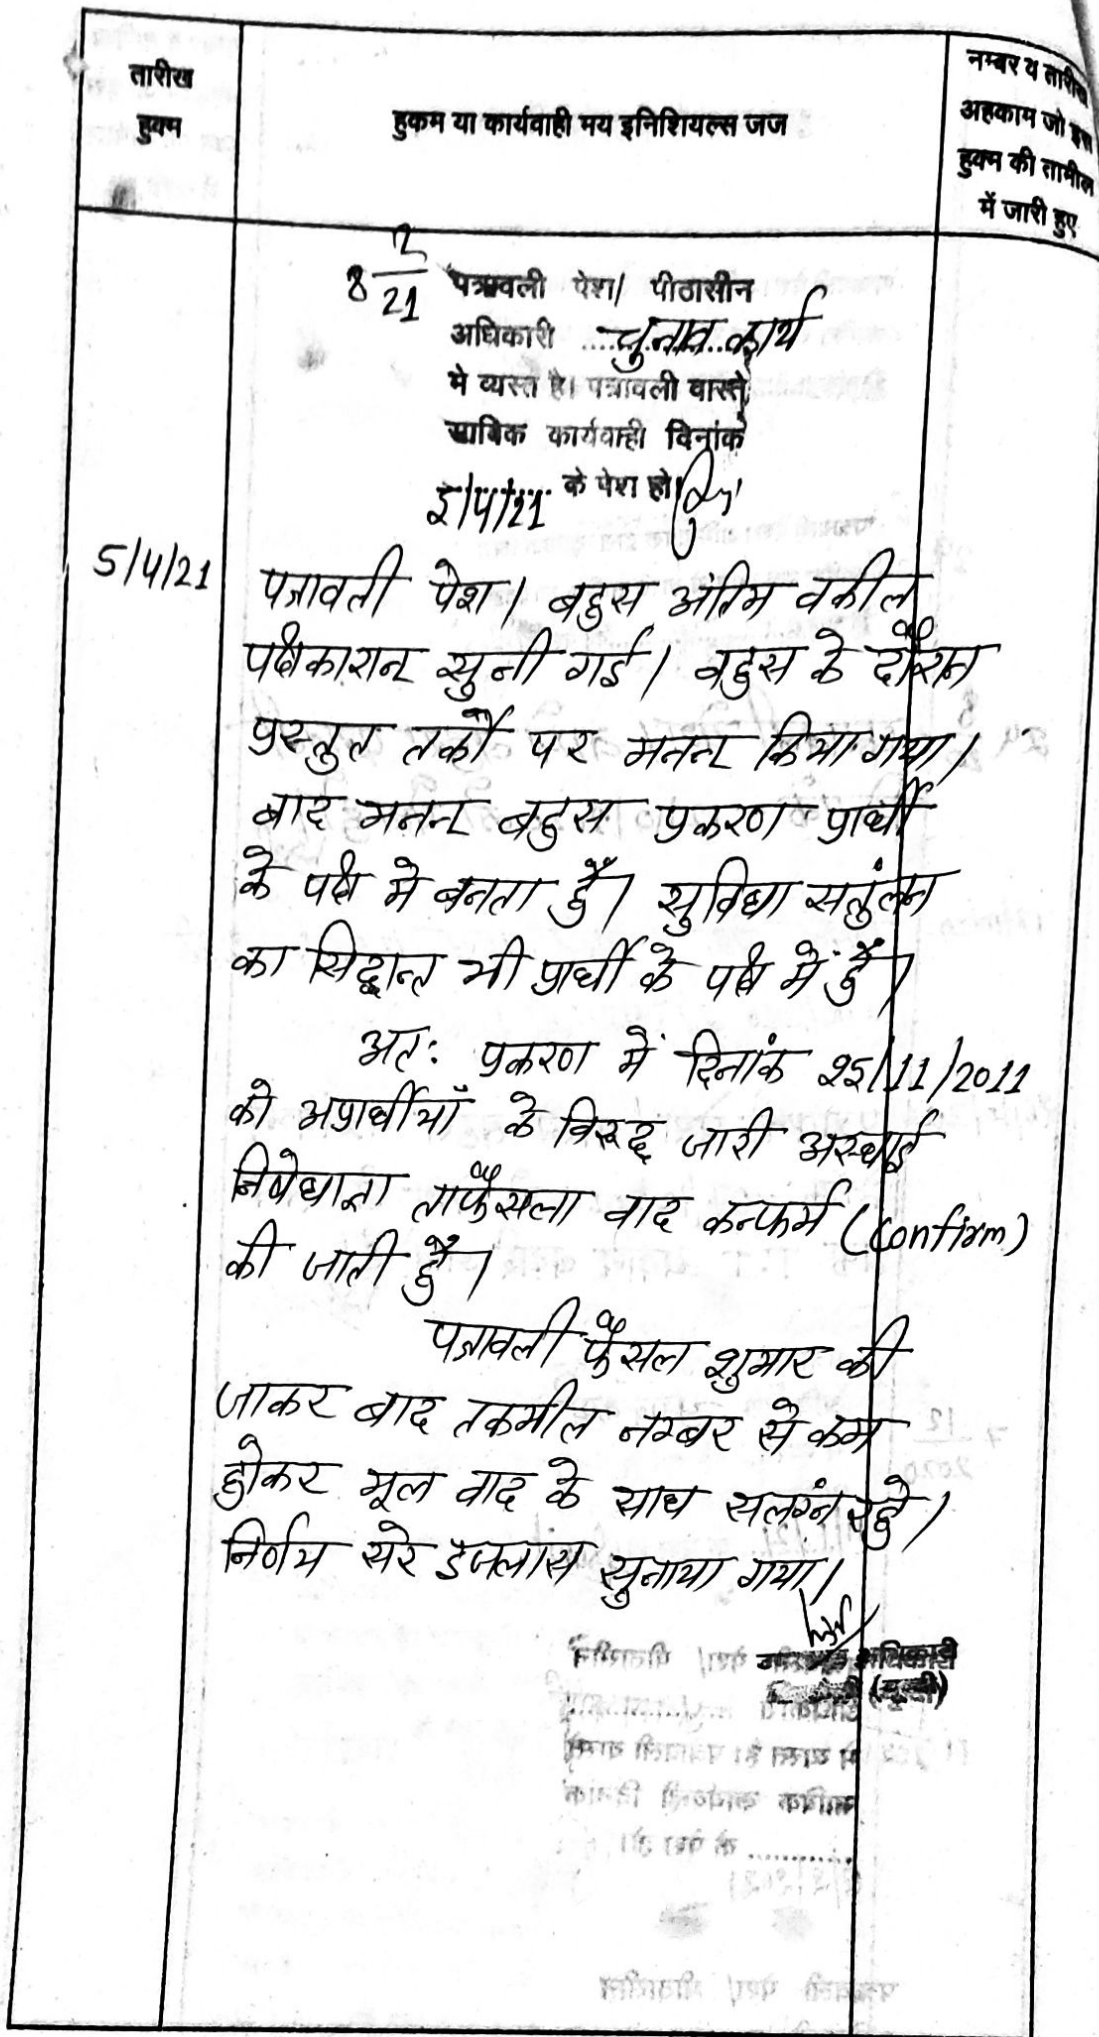 तारीख
हुक्म
हुकम या कार्यवाही मय इनिशियल्स जज
नम्बर व तारीख
अहकाम जो इस
हुक्म की तामील
में जारी हुए
8 2/21 पत्रावली पेश। पीठासीन
अधिकारी चुनाव कार्य
मे व्यस्त है। पत्रावली वास्ते
साबिक कार्यवाही दिनांक
5/4/21 के पेश हो।
5/4/21
पत्रावली पेश। बहस अंतिम वकील
पक्षकारान सुनी गई। बहस के दौरान
प्रस्तुत तर्को पर मनन किया गया।
बाद मनन बहस प्रकरण प्रार्थी
के पक्ष मे बनता हैं। सुविधा सतुंलन
का सिद्धान्त भी प्रार्थी के पक्ष में हैं।
अतः प्रकरण में दिनांक 25/11/2011
को अप्रार्थीयों के विरूद्द जारी अस्थाई
निषेधाज्ञा ताफैसला वाद कन्फर्म (Confirm)
की जाती हैं।
पत्रावली फैसल शुमार की
जाकर बाद तकमील नम्बर से कम
होकर मूल वाद के साथ सलग्नं रहे।
निर्णय सरे इजलास सुनाया गया।
अधिकारी